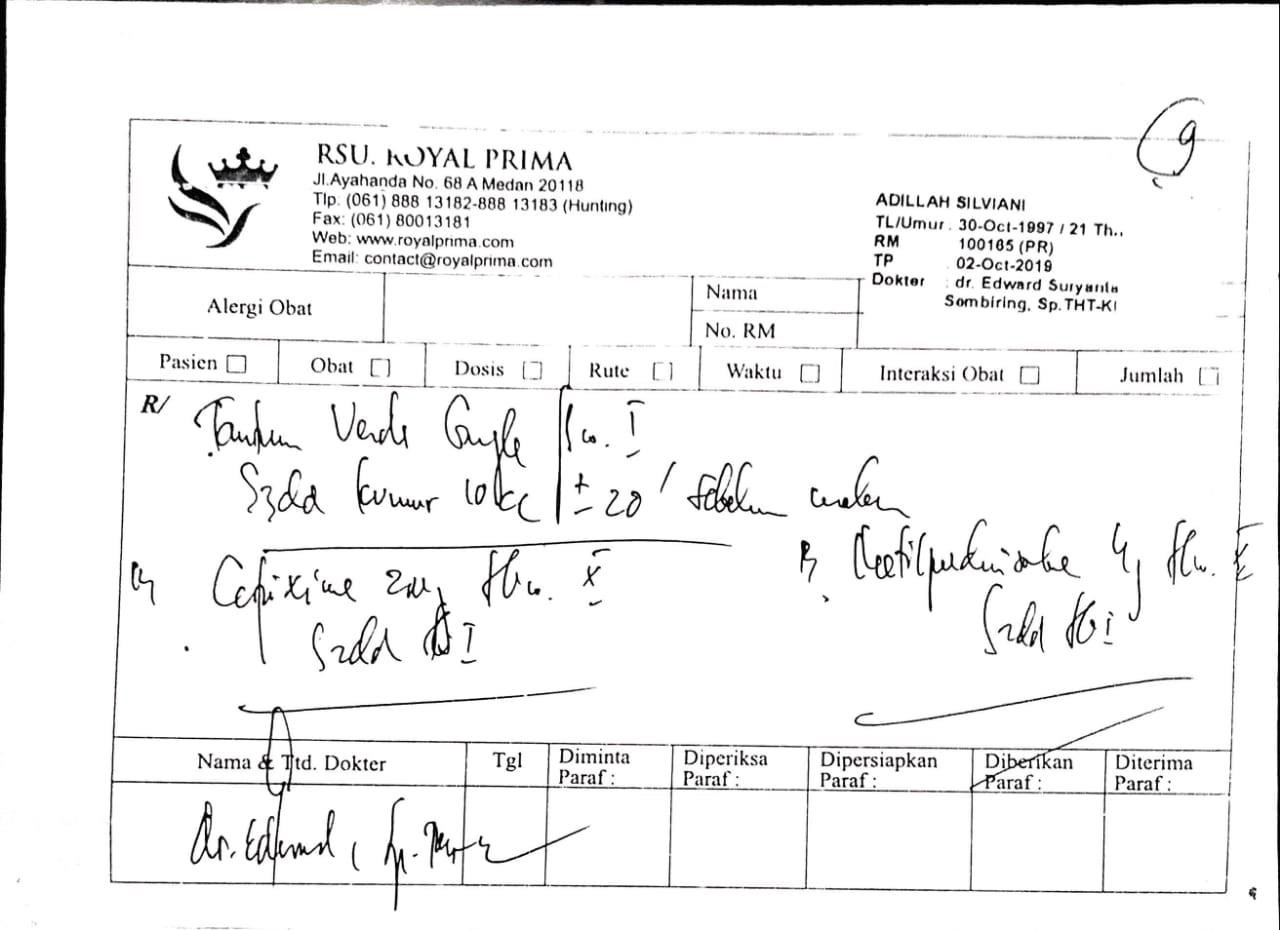 9
RSU. ROYAL PRIMA
Jl.Ayahanda No. 68 A Medan 20118
Tlp: (061) 888 13182-888 13183 (Hunting)
Fax: (061) 80013181
Web: www.royalprima.com
Email: contact@royalprima.com
ADILLAH SILVIANI
TL/Umur . 30-Oct-1997 / 21 Th.,
RM 100165 (PR)
TP . 02-Oct-2019
Dokter : dr. Edward Suryanta
Sombiring, Sp.THT-Kl
Alergi Obat
Nama
No. RM
Pasien Obat Dosis Rute Waktu Interaksi Obat Jumlah
R/ Tantum Verde Gargle I
S3dd kumur 10 cc ± 20' sebelum makan
Cefixime I X
S2dd I
R/ 4
S2dd I
Nama & Ttd. Dokter
Tgl
Diminta
Paraf :
Diperiksa
Paraf :
Dipersiapkan
Paraf :
Diberikan
Paraf :
Diterima
Paraf :
dr. Edward,